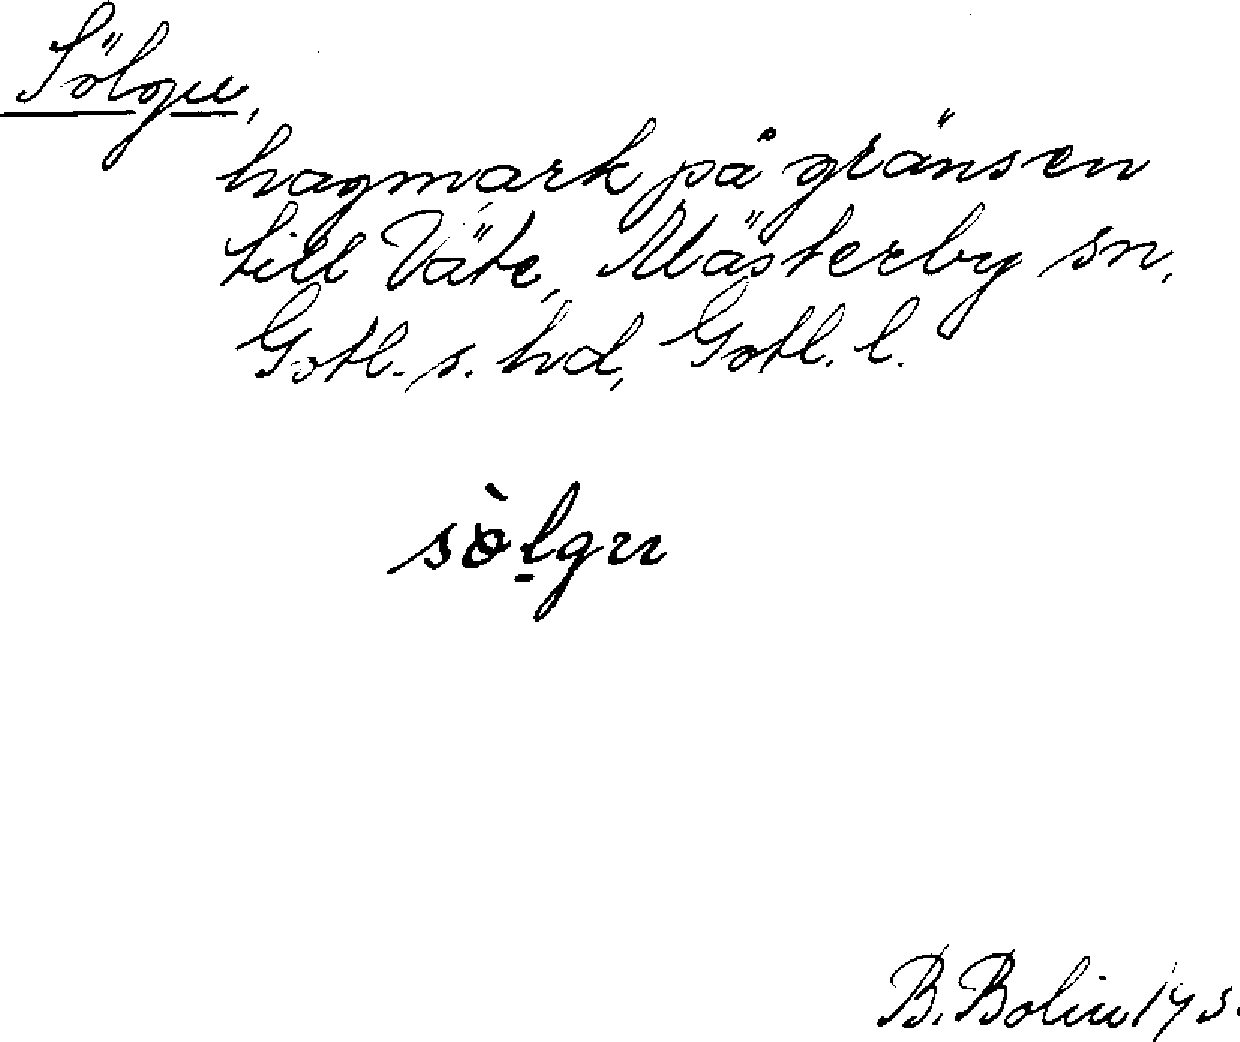 Sölgu,
hagmark på gränsen
till Väte, Mästerby sn,
Gotl. s. hd, Gotl. l.
sò̱lgu
B. Bolin